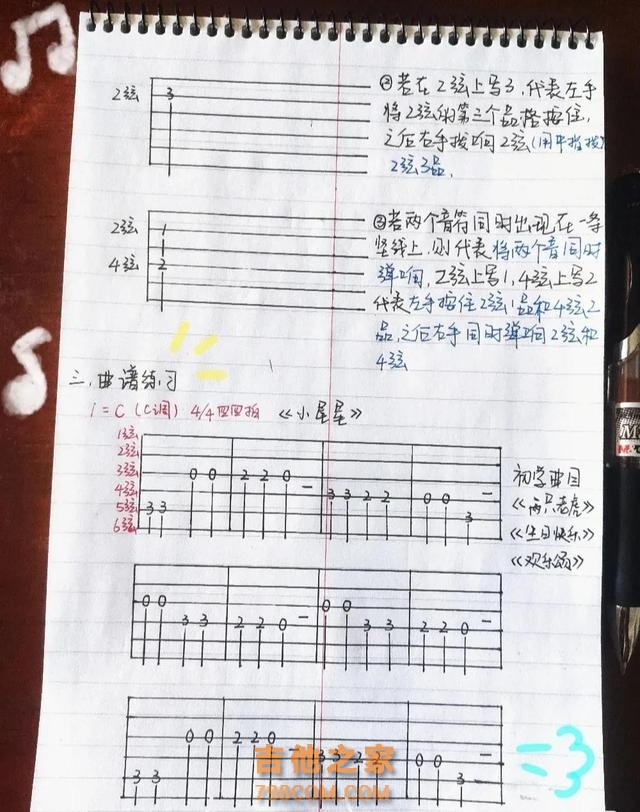 2弦 3
②若在2弦上写3,代表左手
将2弦的第三个品格按住,
之后右手拨响2弦(用中指拨)
2弦3品,
2弦 1
4弦 2
③若两个音符同时出现在一条
竖线上,则代表将两个音同时
弹响,2弦上写1,4弦上写2
代表左手按住2弦1品和4弦2
品,之后右手同时弹响2弦和
4弦
三.曲谱练习
1=C (C调) 4/4四四拍 《小星星》
1弦
2弦
3弦
4弦
5弦
6弦
3 3 0 0 2 2 0 - 3 3 2 2 0 0 3 -
初学曲目
《两只老虎》
《生日快乐》
《欢乐颂》
0 0 3 3 2 2 0 - 0 0 3 3 2 2 0 -
3 3 0 0 2 2 0 3 3 2 0 0 3 -
吉他之家
798COM.COM